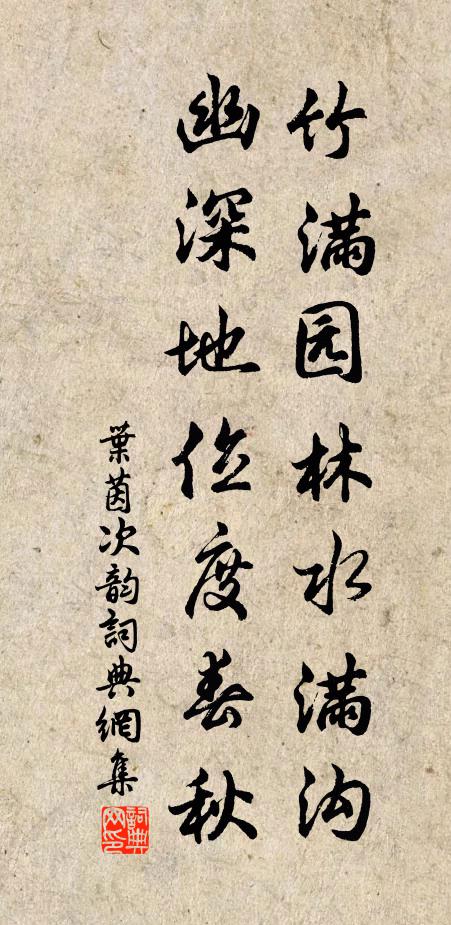 竹满园林水满沟
幽深地位度春秋
葉茵次韵詞典網集
詞典网印